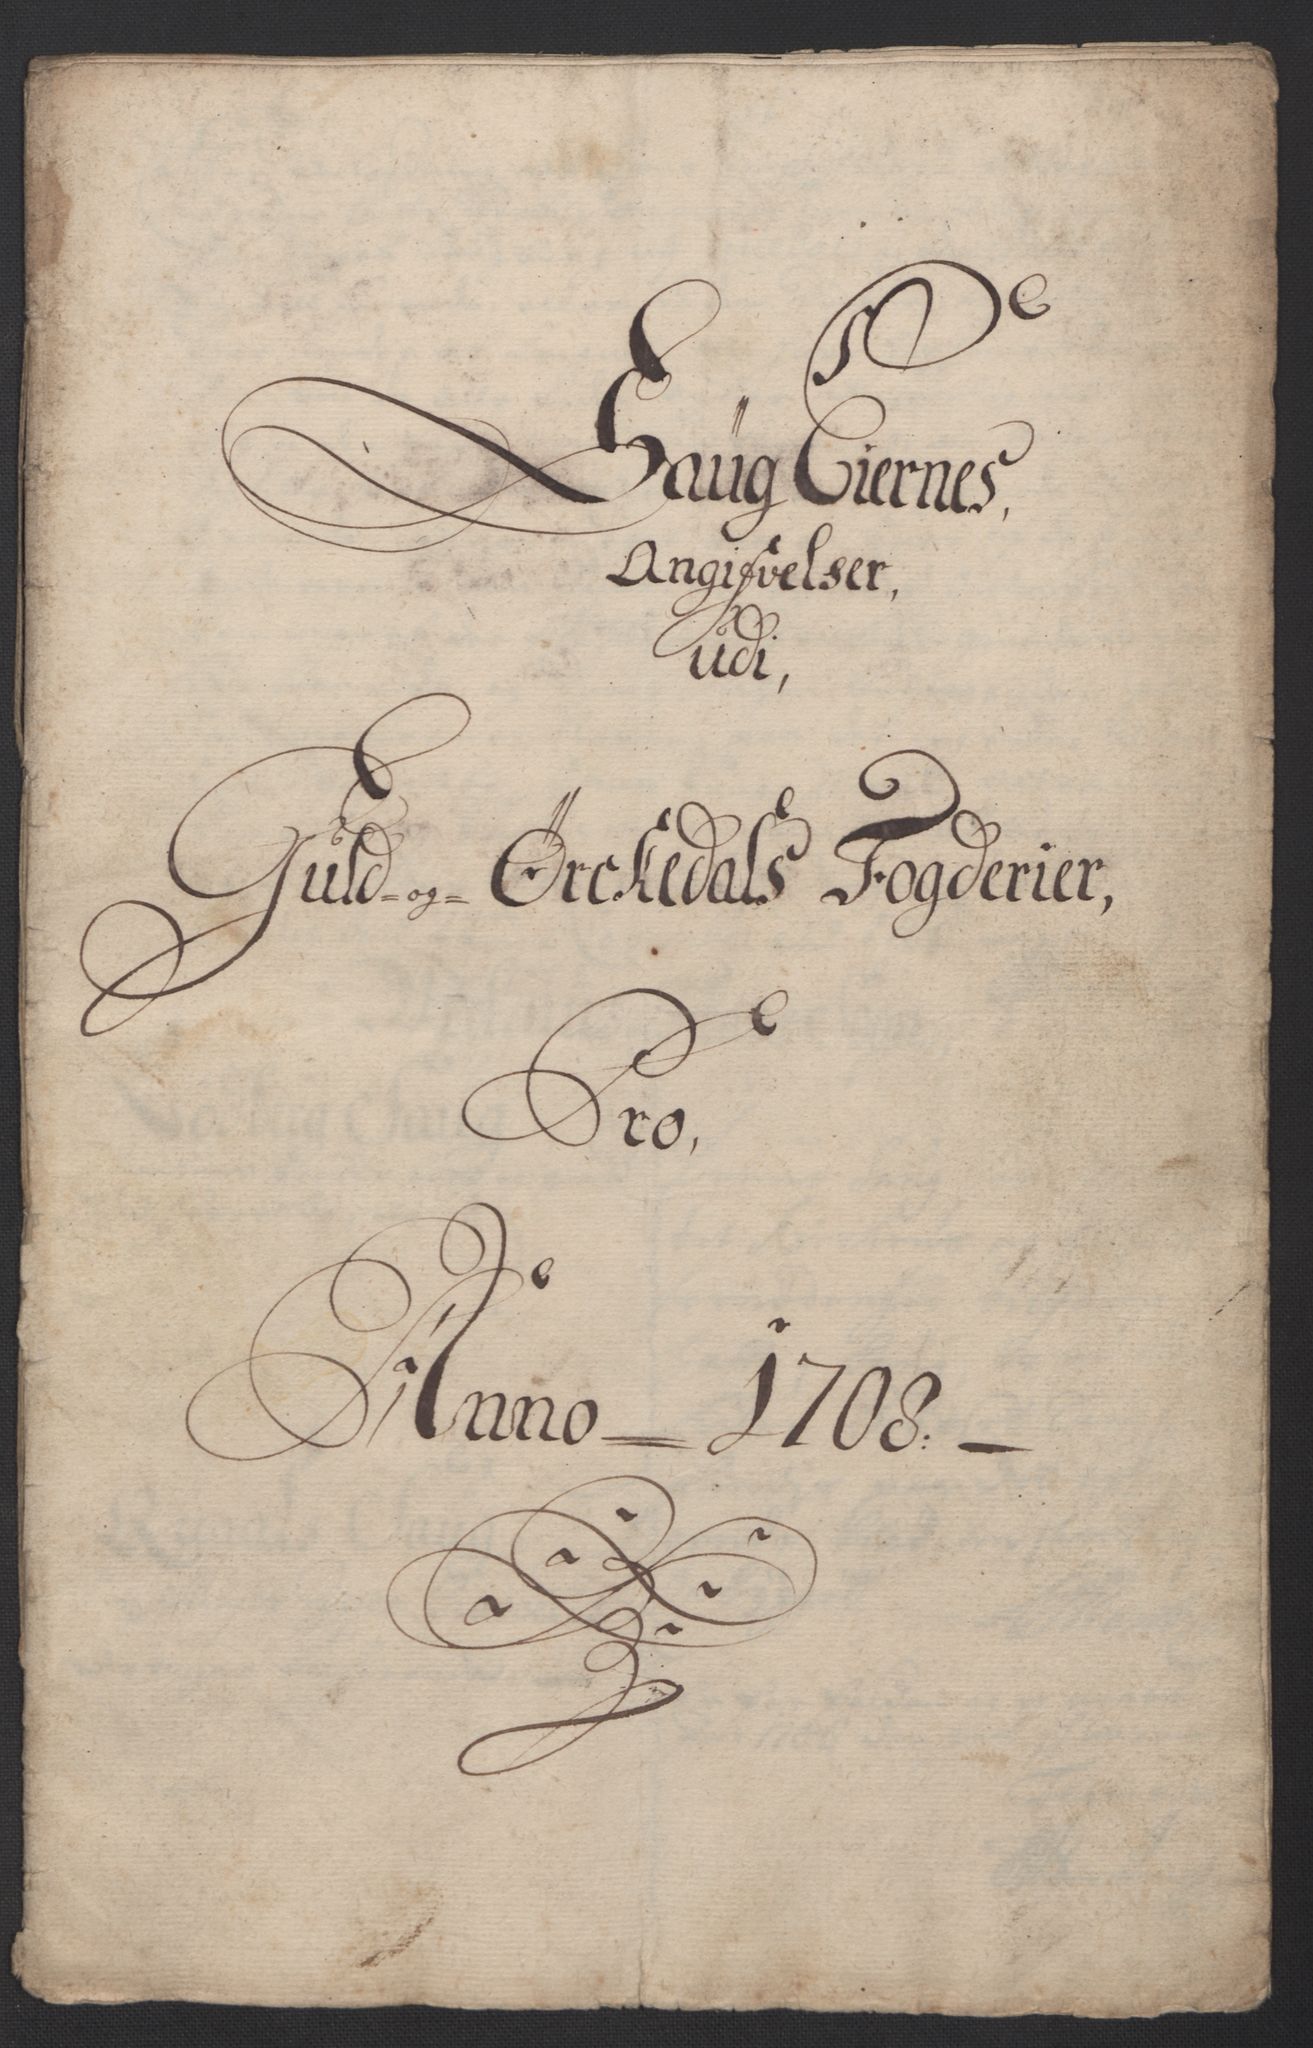 Saug Eiernes,
Angifvelser,
udi,
Guld- og- Örckedals Fogderier,
Pro,
Anno 1708.